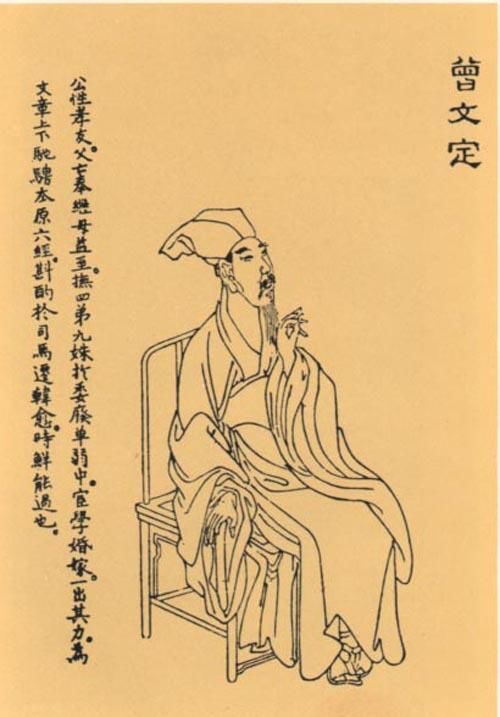 曾文定
公性孝友。父亡奉繼母益至。撫四弟九妹於委廢單弱中。宦學婚嫁。一出其力。為
文章上下馳騁本原六經。斟酌於司馬遷韓愈。時鮮能過也。